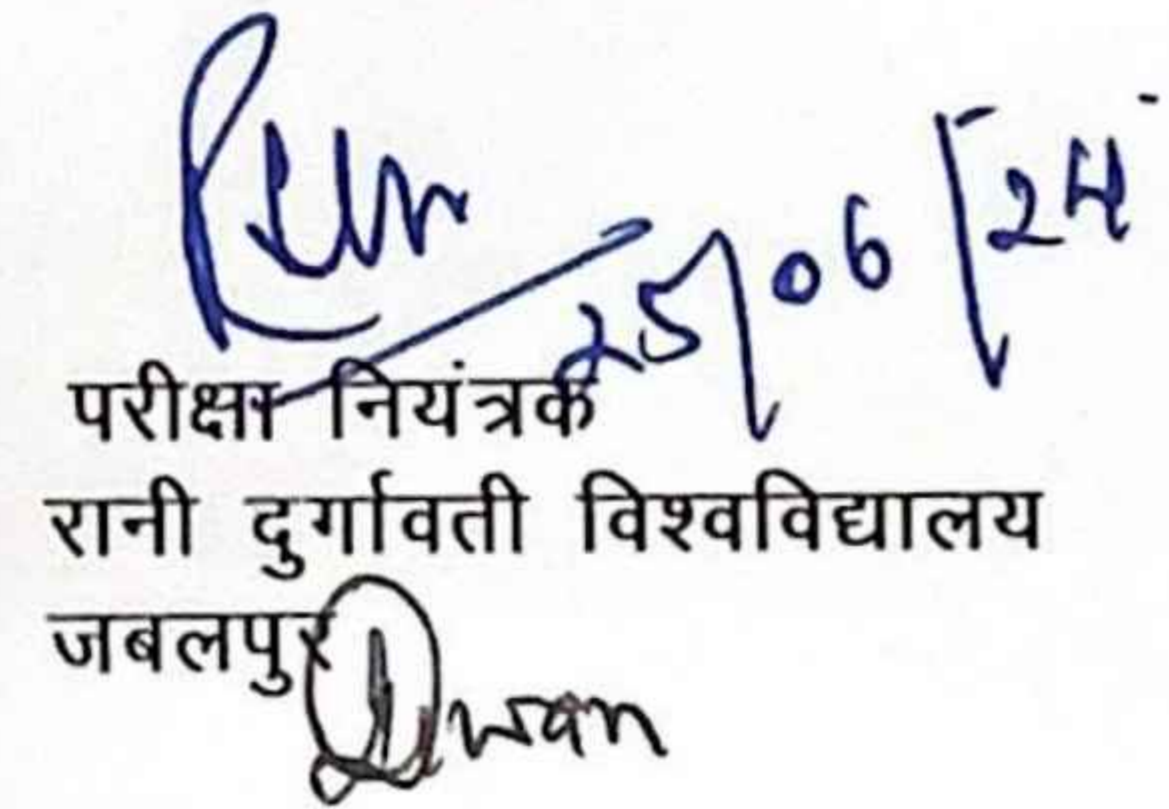 25/06/24
परीक्षा नियंत्रक
रानी दुर्गावती विश्वविद्यालय
जबलपुर